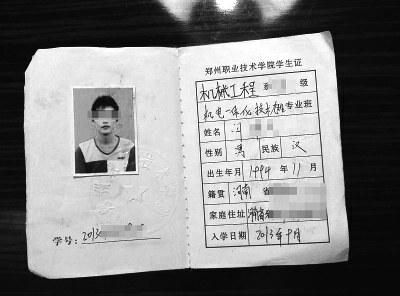 学号：2013
郑州职业技术学院学生证
机械工程系 级
机电一体化技术 专业班
姓名 闫
性别 男 民族 汉
出生年月 1994 年 11 月
籍贯 河南 省
家庭住址 河南省
入学日期 2013年9月